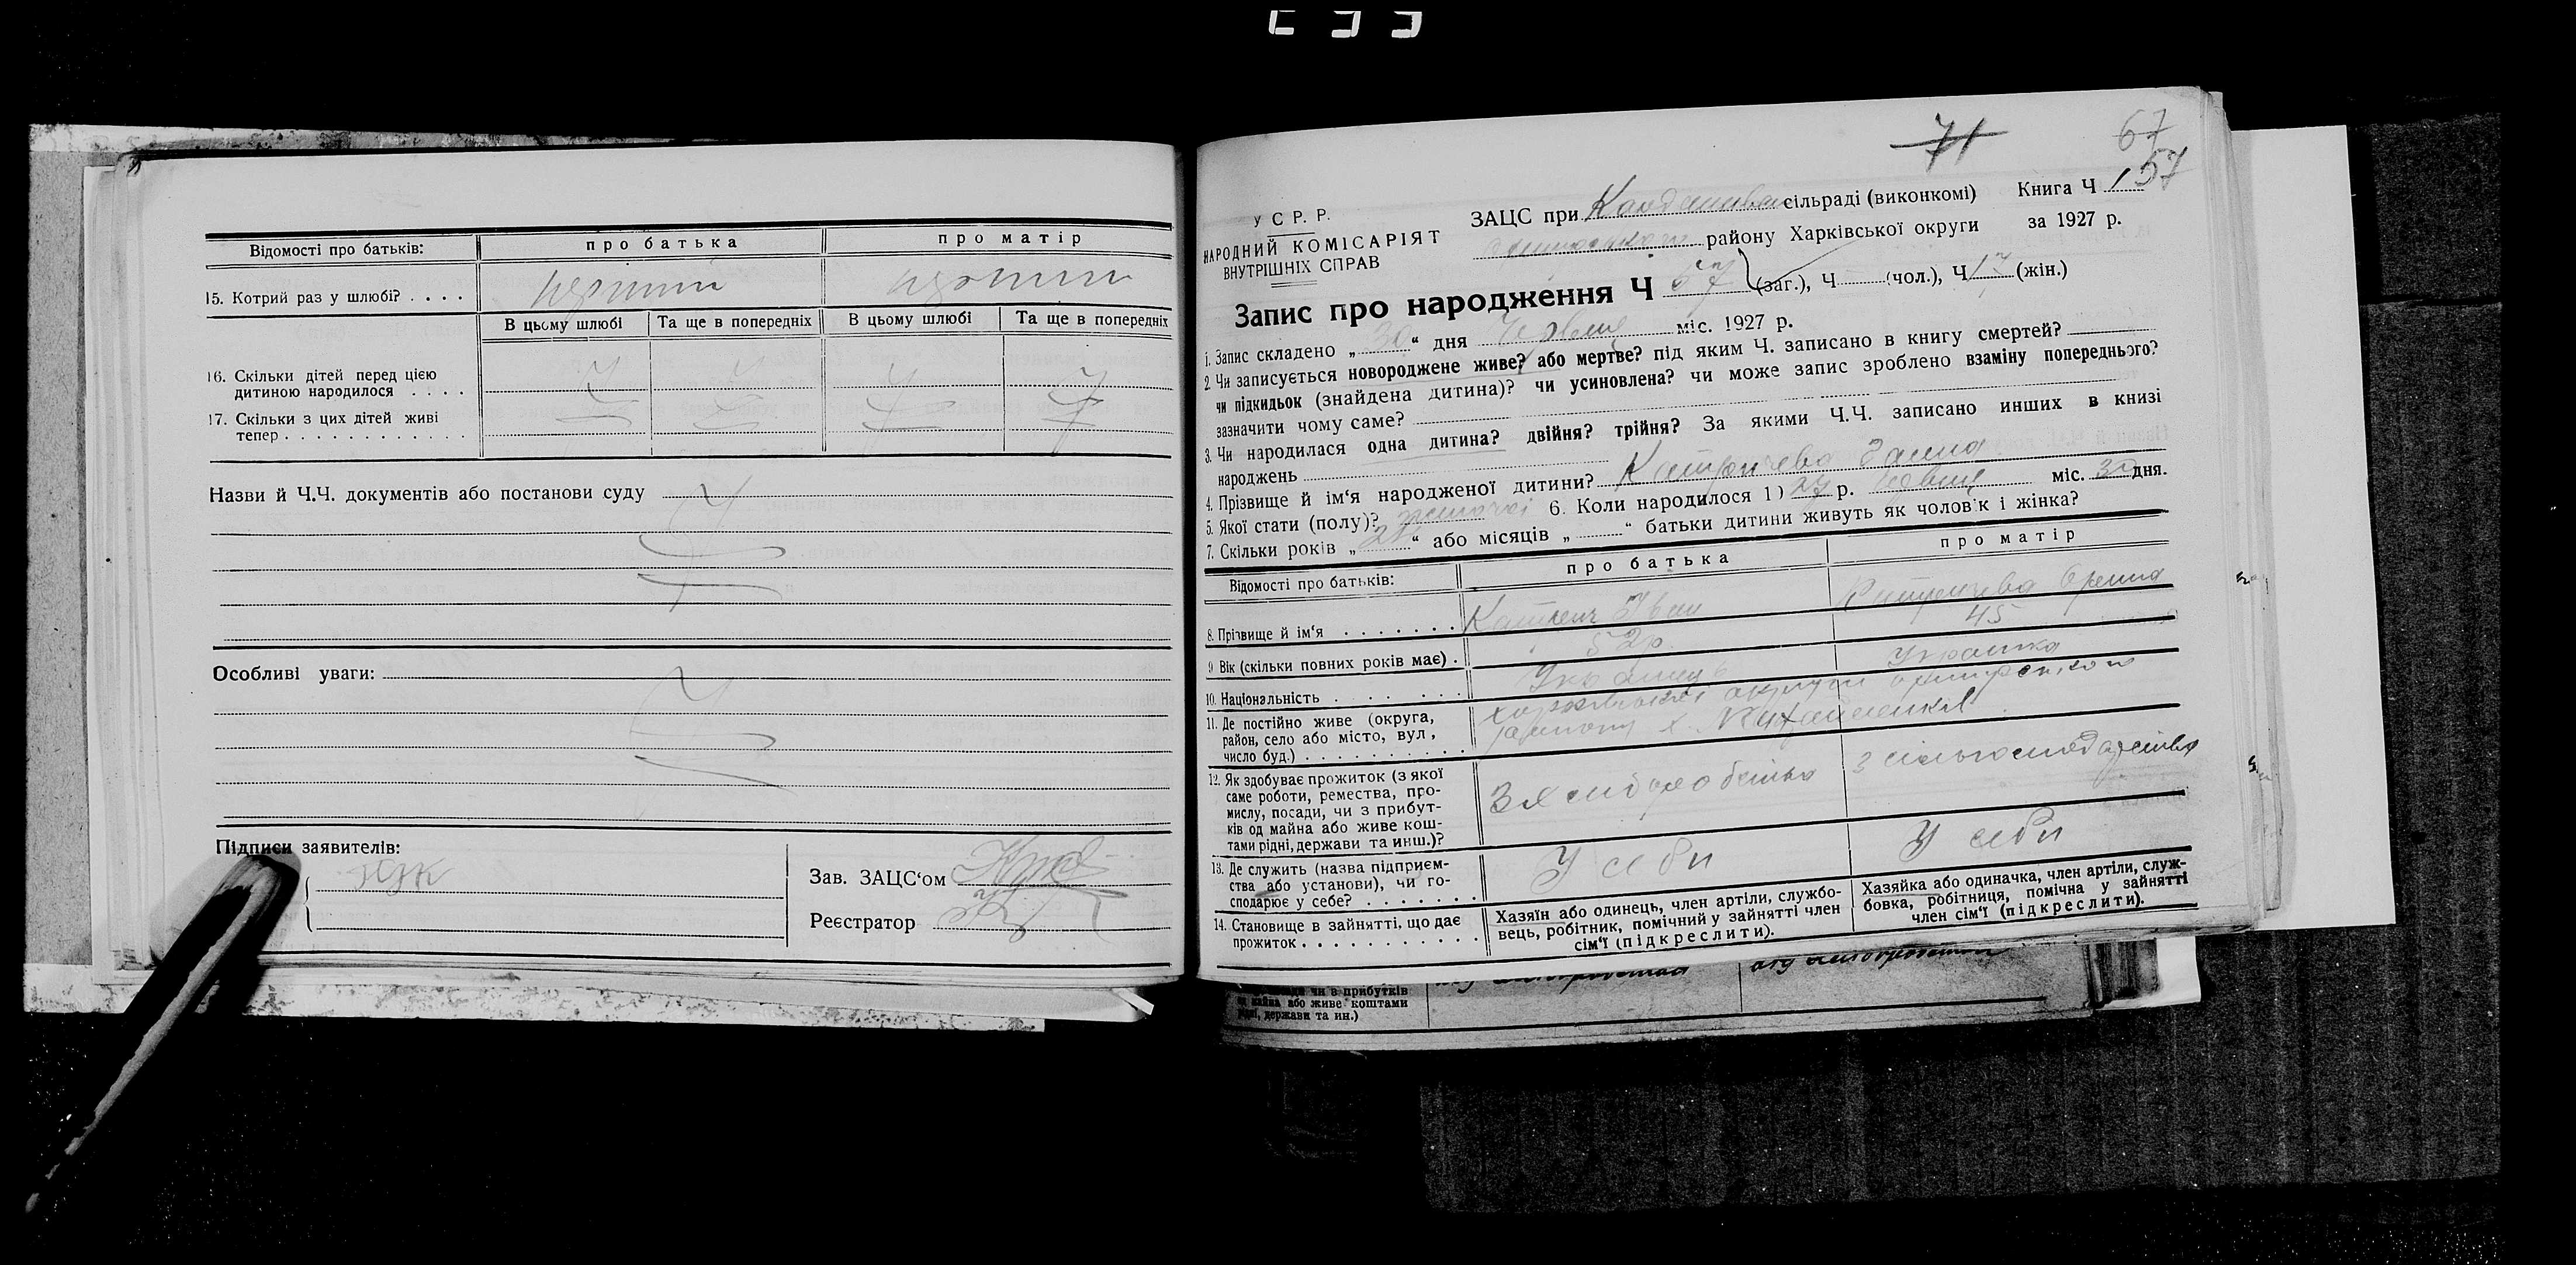 Відомості про батьків: про батька про матір
15. Котрий раз у шлюбі? . . . . перший перший
В цьому шлюбі Та ще в попередніх В цьому шлюбі Та ще в попередніх
16. Скільки дітей перед цією
дитиною народилося . . . .
17. Скільки з цих дітей живі
тепер . . . . . . . . . . . .
Назви й Ч.Ч. документів або постанови суду
Особливі уваги:
Підписи заявителів:
Зав. ЗАЦС‘ом
Реєстратор
71
67
57
У С Р. Р.
НАРОДНИЙ КОМІСАРІЯТ
ВНУТРІШНІХ СПРАВ
ЗАЦС при сільраді (виконкомі) Книга Ч 1
району Харківської округи за 1927 р.
Запис про народження Ч 67 (заг.), Ч (чол.), Ч 17 (жін.)
1. Запис складено „ 30 “ дня Червня міс. 1927 р.
2. Чи записується новороджене живе? або мертве? під яким Ч. записано в книгу смертей?
чи підкидьок (знайдена дитина)? чи усиновлена? чи може запис зроблено взаміну попереднього?
зазначити чому саме?
3. Чи народилася одна дитина? двійня? трійня? За якими Ч.Ч. записано инших в книзі
народжень
4. Прізвище й ім‘я народженої дитини? Ганна
5. Якої стати (полу)? жіночої 6. Коли народилося 1) 27 р. Червня міс. 30 дня.
7. Скільки років „ “ або місяців „ “ батьки дитини живуть як чоловік і жінка?
Відомості про батьків: про батька про матір
8. Прізвище й ім‘я . . . . . . . Іван
9. Вік (скільки повних років має) . 52р. 45
10. Національність . . . . . Українець Українка
11. Де постійно живе (округа,
район, село або місто, вул.,
число буд.) . . . . . . . . . Харківської округи
району х.
12. Як здобуває прожиток (з якої
саме роботи, ремества, про-
мислу, посади, чи з прибут-
ків од майна або живе кош-
тами рідні, держави та инш.)?
З хліборобства з сільгосподарства
13. Де служить (назва підприєм-
ства або установи), чи го-
сподарює у себе? . . . . . . . У себи У себи
14. Становище в зайнятті, що дає
прожиток . . . . . . . . . . .
Хазяїн або одинець, член артіли, службо-
вець, робітник, помічний у зайнятті член
сім‘ї (підкреслити).
Хазяйка або одиначка, член артіли, служ-
бовка, робітниця, помічна у зайнятті
член сім‘ї (підкреслити).
чи з прибутків
майна або живе коштами
рідні, держави та ин.)